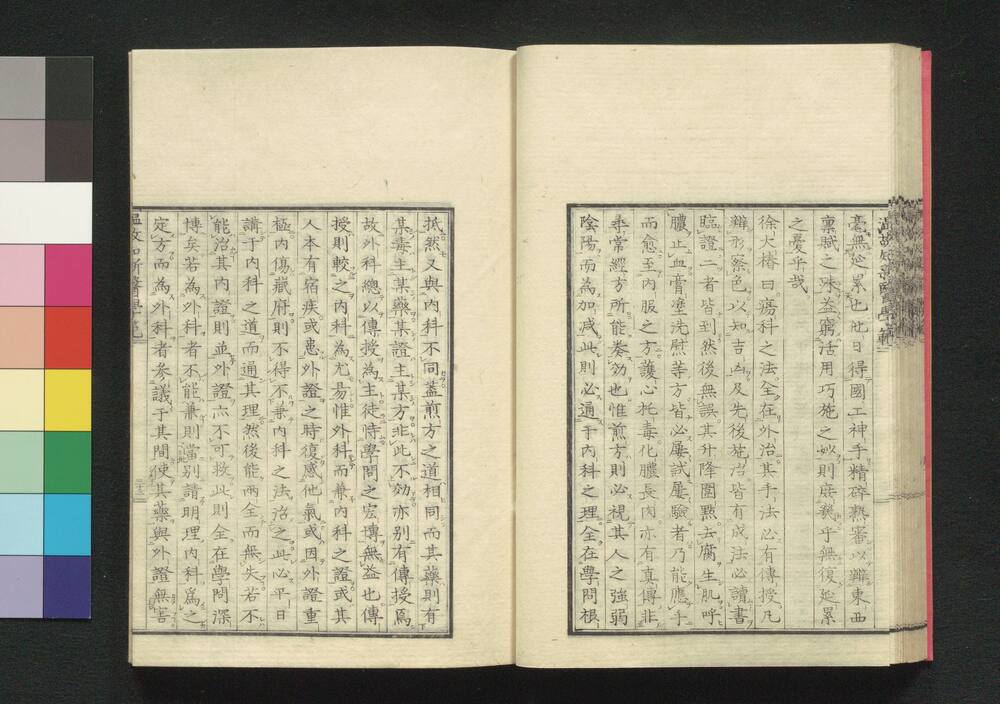 毫無悆累也他日得國工神手精碎熟審以辨東西
稟賦之味益窮活用巧施之妙則庶幾乎無復延累
之憂乎哉
徐大椿曰瘍科之法全在外治其手法必有傳授凡
辨形察色以知吉凶及先後施治皆有成法必讀書
臨證二者皆到然後無誤其升降圍點去腐生肌呼
膿止血膏塗洗慰等方皆必屢試屢驗者乃能應手
而愈至内服之方護心托毒化膿長肉亦有真傳非
尋常經方所能奏効也惟煎方則必視其人之強弱
陰陽而為加減此則必通于内科之理全在學問根
抵然又與内科不同蓋煎方之道相同而其藥則有
某毒主某藥某證主某方非此不効亦别有傳授焉
故外科總以傳授為主徒恃學問之宏博無益也傳
授則較之内科為尤易惟外科而兼内科之證或其
人本有宿疾或患外證之時復感他氣或因外證重
極内傷臟府則不得不兼内科之法治之此必平日
講于内科之道而通其理然後能两全而無失若不
能治其内證則並外證亦不可救此則全在學問深
博矣若為外科者不能兼則當别請明理内科為之
定方而為外科者参議于其間使其藥與外證無害
温故知新醫學範